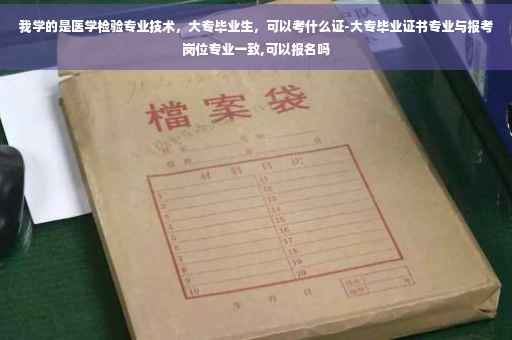 我学的是医学检验专业技术，大专毕业生，可以考什么证-大专毕业证书专业与报考
岗位专业一致,可以报名吗
檔案袋
材料目次
1 11
2 12
3 13
4 14
5 15
6 16
7 17
8 18
9 19
10 20
年 月 日